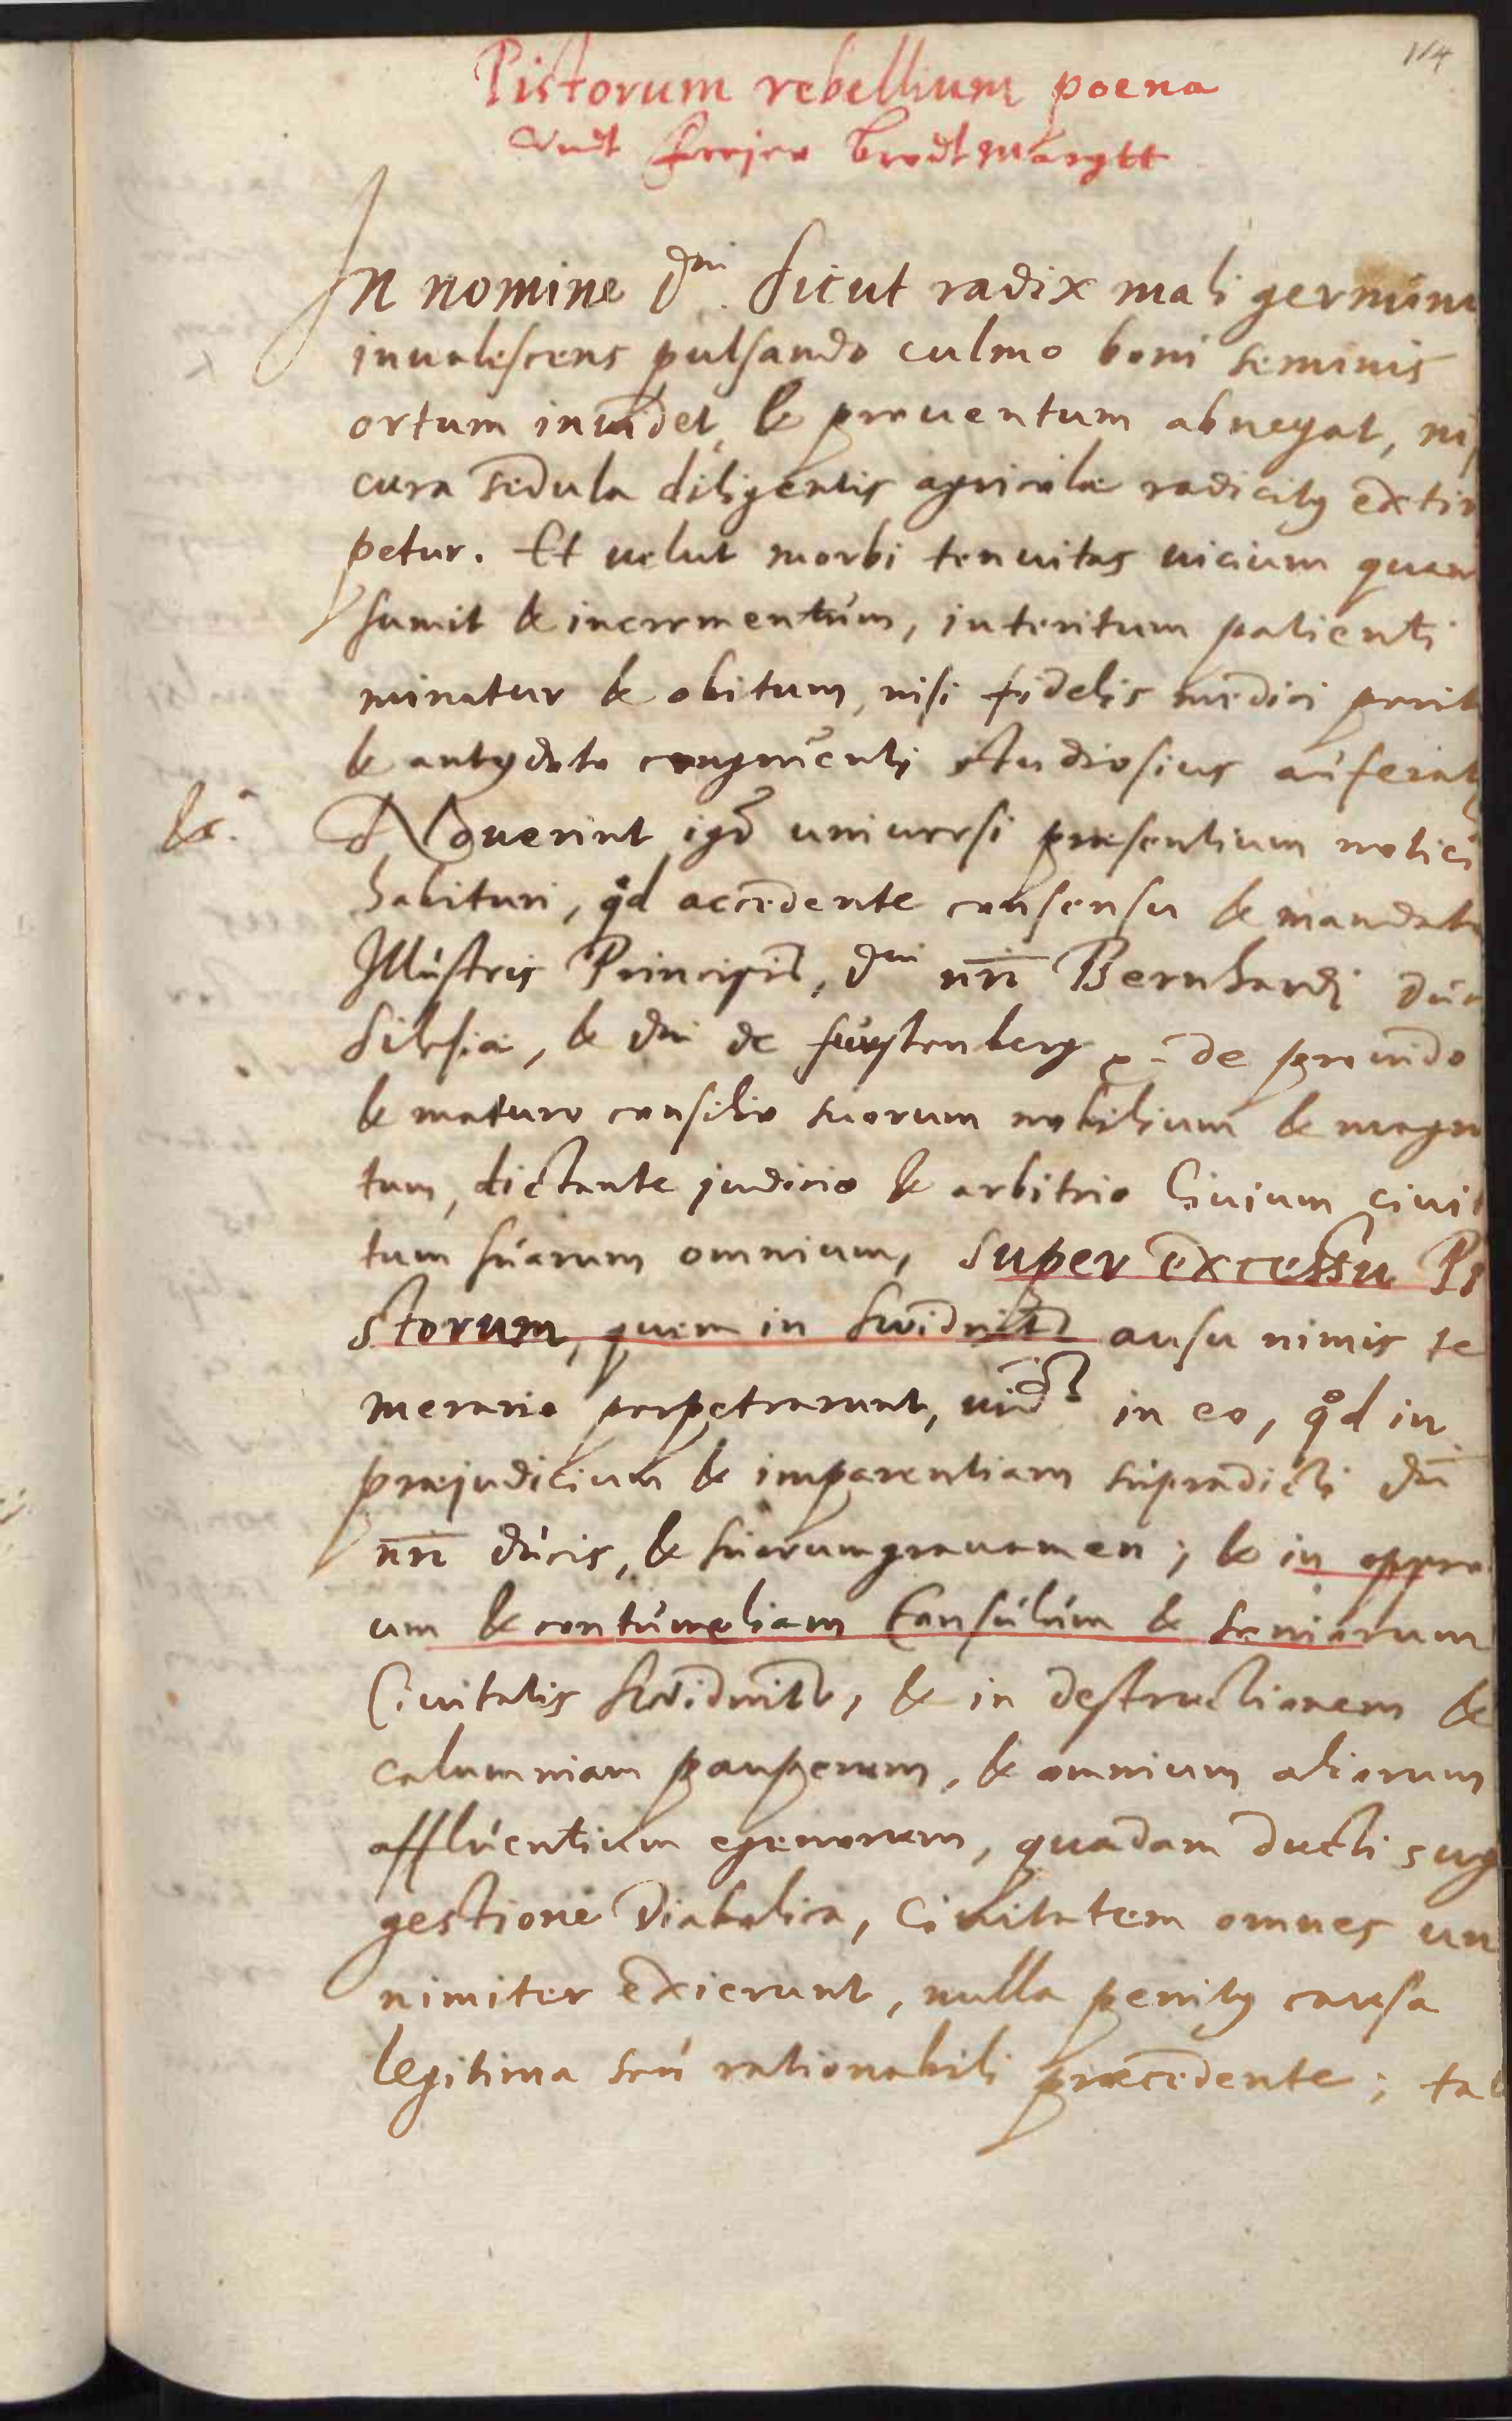 114
Pistorum rebellium poena
Vndt freyer brodtmargtt
In nomine Dni. Sicut radix mali germini
inualescens pulsando culmo boni seminis
ortum inuidet, & prouentum abnegat, nis
cura sedula diligentis agricolae radicitus extir
petur. Et uelut morbi tenuitas uicium quam
sumit & incrementum, interitum patienti
minatur & obitum, nisi fidelis medici perit
& antydoto congruenti studiosius auferat
&c. Nouerint igr uniuersi praesentium notici
habituri, qd accedente consensu & mandato
Illustris Principis, Dni nri Bernhardi Duc
Silesiae, & Dni de furstenberg de prouido
& maturo consilio suorum nobilium & magna
tum, dictante judicio & arbitrio Ciuium ciuit
tum suarum omnium, super excessu Pi
storum, quem in Swidnitz ausu nimis te
merario perpetrarunt, in eo, qd in
praejudicium & imparentiam supradicti Dni
nri Ducis, & suorum grauamen; & in oppro
um & contumeliam Consulum & seniorum
Ciuitatis Swidnitz, & in destructionem &
calumniam pauperum, & omnium aliorum
affluentium egenorum, quadam ducti sug
gestione Diabolica, Ciuitatem omnes un
nimiter exierunt, nulla penitus causa
legitima seu rationabili praecedente; ta